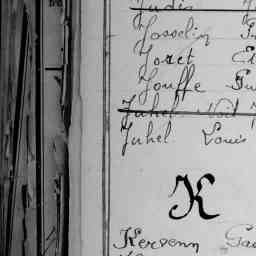 Judis
Josselin
Joret
Jouffe
Juhel Noël
Juhel Louis
K
Kervenn